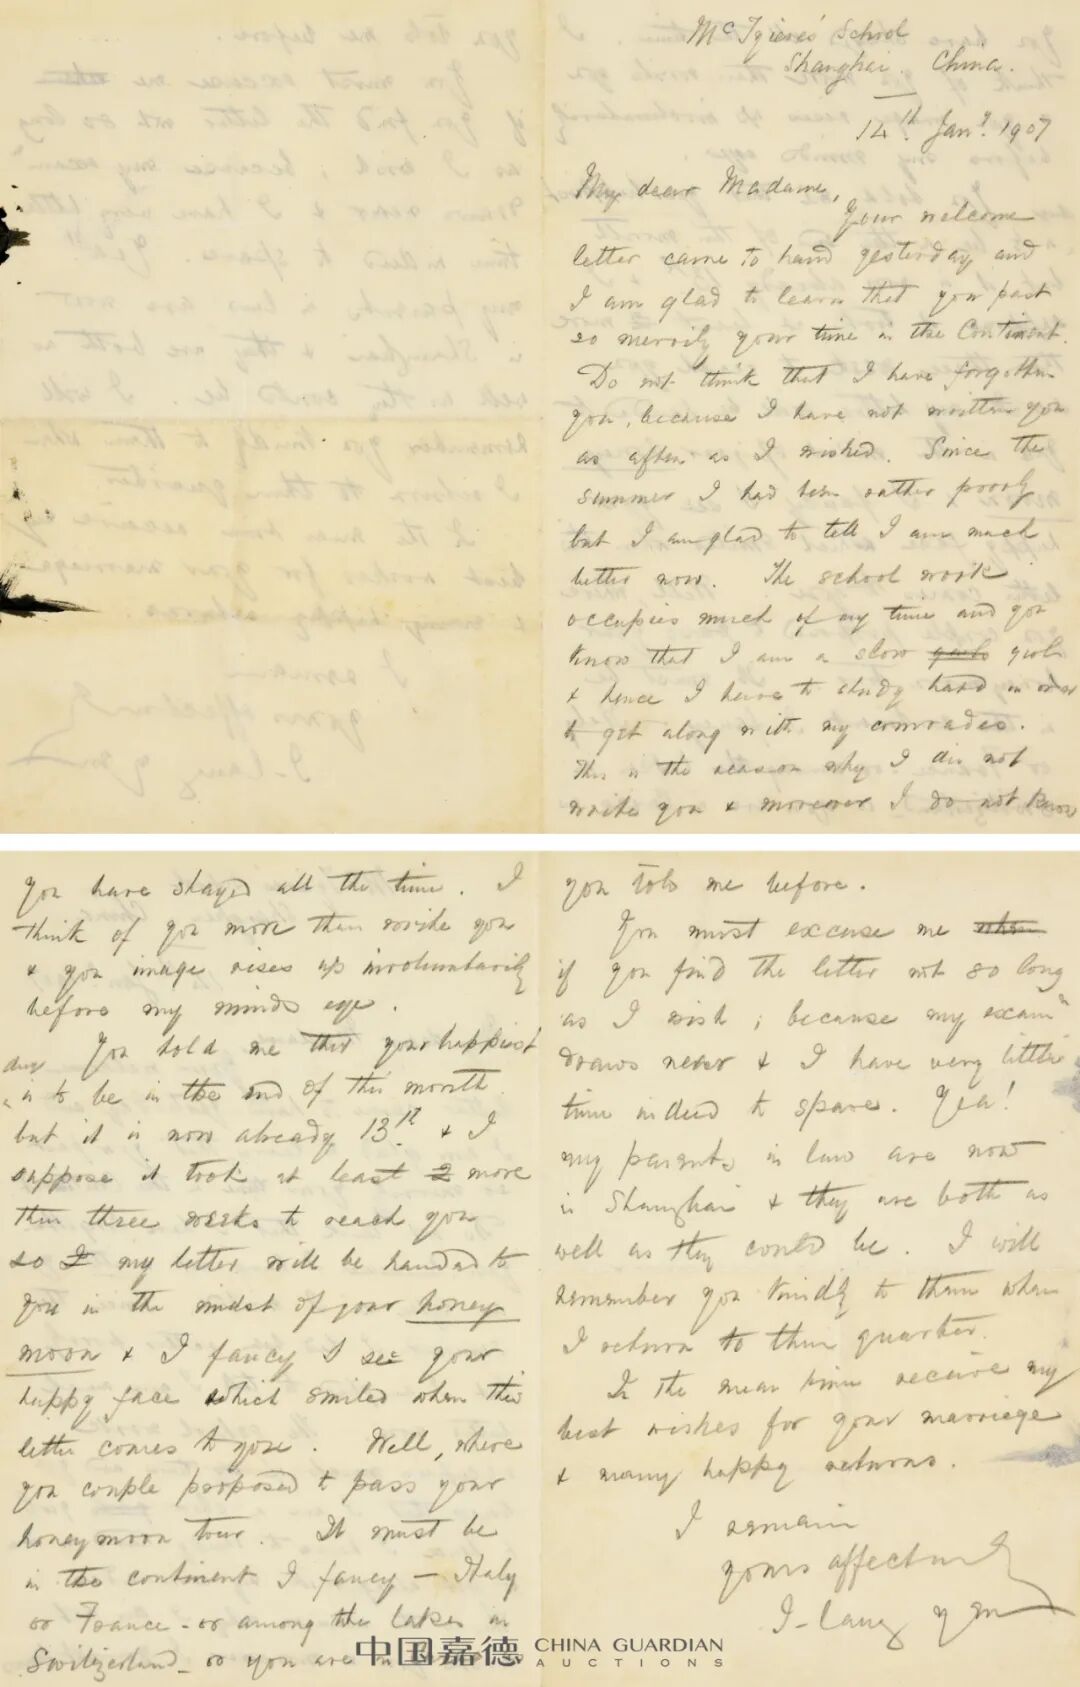 McTyiere's School
Shanghai. China.
14th Jany. 1907
My dear Madame,
Your welcome
letter came to hand yesterday and
I am glad to learn that you past
so merrily your time in the Continent.
Do not think that I have forgotten
you, because I have not written you
as often as I wished. Since the
summer I had been rather poorly
but I am glad to tell I am much
better now. The school work
occupies much of my time and you
know that I am a slow girl
& hence I have to study hard in order
to get along with my comrades.
This is the reason why I did not
write you & moreover I do not know
you have stayed all the time. I
think of you more than write you
& you image rises up involuntarily
before my minds eye.
You told me that your happiest
day
is to be in the end of this month
but it is now already 13th & I
suppose it took at least 2 more
than three weeks to reach you
so I my letter will be handed to
you in the midst of your honey
moon & I fancy I see your
happy face which smiled when this
letter comes to you. Well, where
you couple proposed to pass your
honeymoon tour. It must be
in the continent I fancy — Italy
or France - or among the lakes in
Switzerland - or you are in
you told me before.
You must excuse me when
if you find the letter not so long
as I wish; because my exam"
draws near & I have very little
time indeed to spare. Yea!
my parents in law are now
in Shanghai & they are both as
well as they could be. I will
remember you kindly to them when
I return to their quarter.
In the mean time receive my
best wishes for your marriege
& many happy returns.
I remain
yours affectionately
I-lang Yen
中国嘉德 CHINA GUARDIAN
AUCTIONS